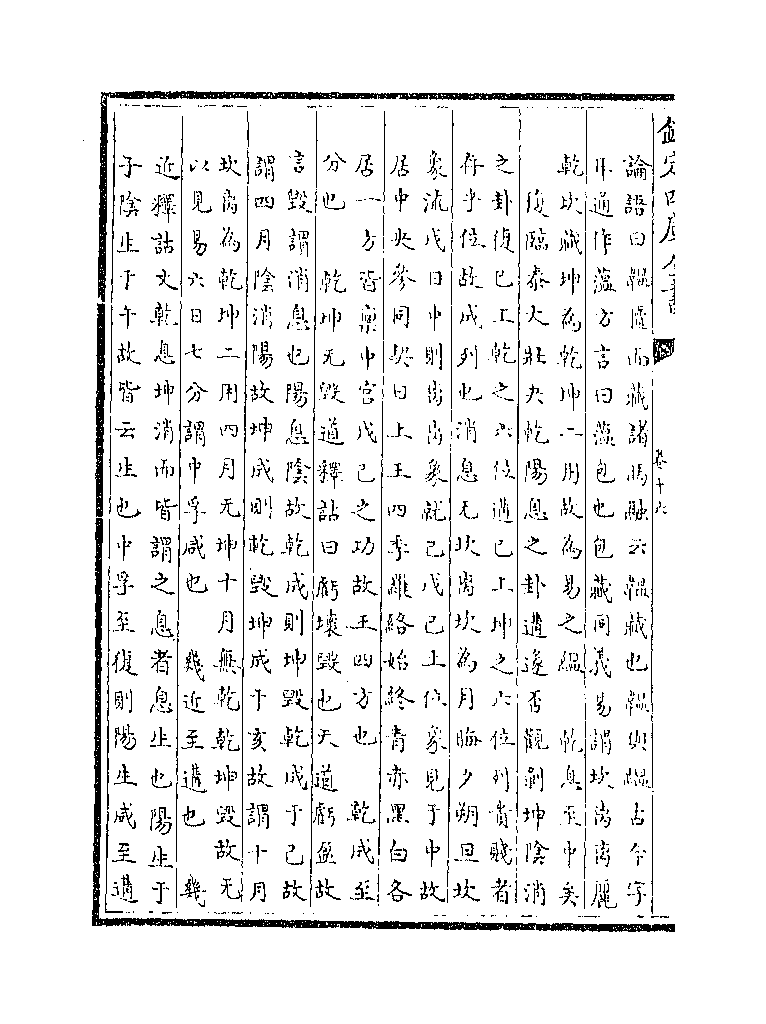 欽定四庫全書
卷十六
論語曰韞匵而藏諸馬融云韞藏也韞與縕古今字
耳通作藴方言曰藴包也包藏同義易謂坎离离麗
乾坎藏坤為乾坤二用故為易之縕　乾息至中矣
復臨泰大壯夬乾陽息之卦遘遂否觀剝坤陰消
之卦復巳上乾之六位遘巳上坤之六位列貴賤者
存乎位故成列也消息无坎离坎為月晦夕朔旦坎
象流戊日中則离离象就己戊己土位象見于中故
居中央參同契曰土王四季羅絡始終青赤黑白各
居一方皆稟中宮戊己之功故王四方也　乾成至
分也　乾坤无毀道釋詁曰虧壞毀也天道虧盈故
言毀謂消息也陽息陰故乾成則坤毀乾成于巳故
謂四月陰消陽故坤成則乾毀坤成于亥故謂十月
坎离為乾坤二用四月无坤十月無乾乾坤毀故无
以見易六日七分謂中孚咸也　幾近至遘也　幾
近釋詁文乾息坤消而皆謂之息者息生也陽生于
子陰生于午故皆云生也中孚至復則陽生咸至遘